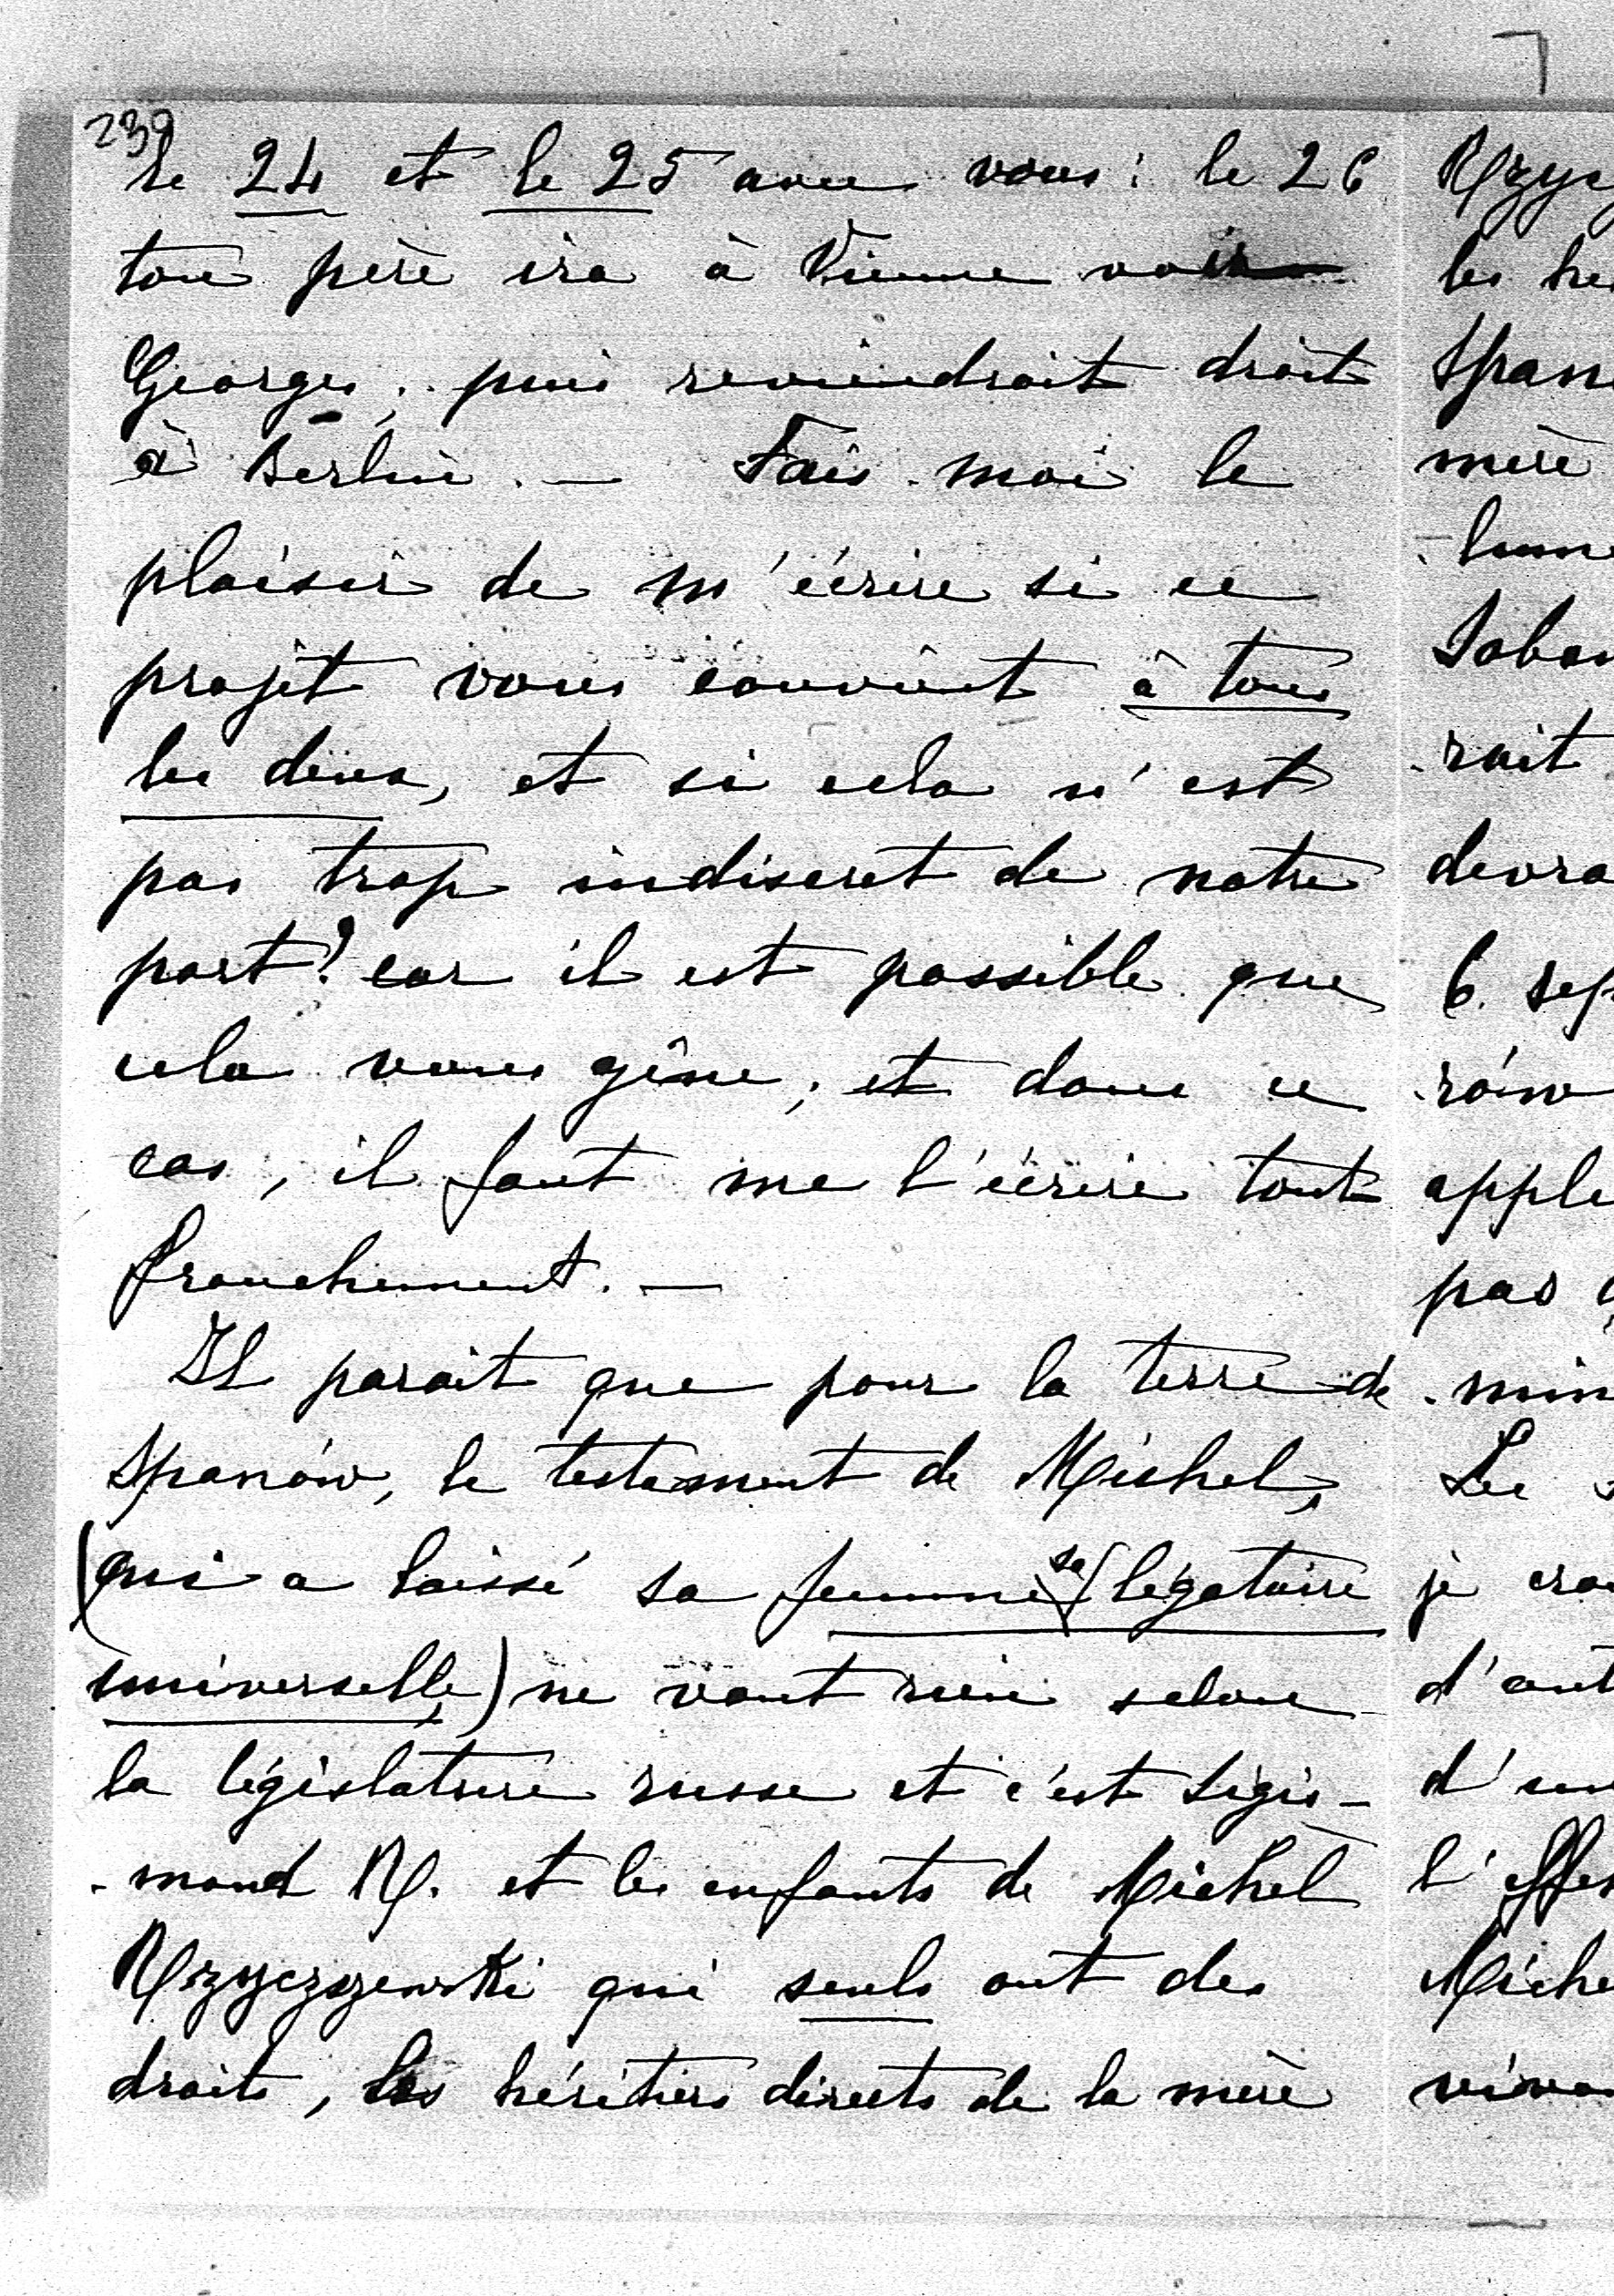 239
le 24 et le 25 avec vous: le 26
ton père ira à Vienne voir
Georges; puis reviendrait droit
à Berlin. — Fais-moi le
plaisir de m'écrire si ce
projet vous convient à tous
les deux, et si cela n'est
pas trop indiscret de notre
part? car il est possible que
cela vous gêne; et dans ce
cas, il faut me l'écrire tout
franchement. —
Il parait que pour la terre de
Spanów, le testament de Michel,
(qui a laissé sa femme sa légataire
universelle,) ne vaut rien selon
la législature russe et c'est Sigis-
-mond R. et les enfants de Michel
Rzyszczewski qui seuls ont des
droits, les héritiers directs de la mère
mère
Les
pas
6. sep
-rait
je